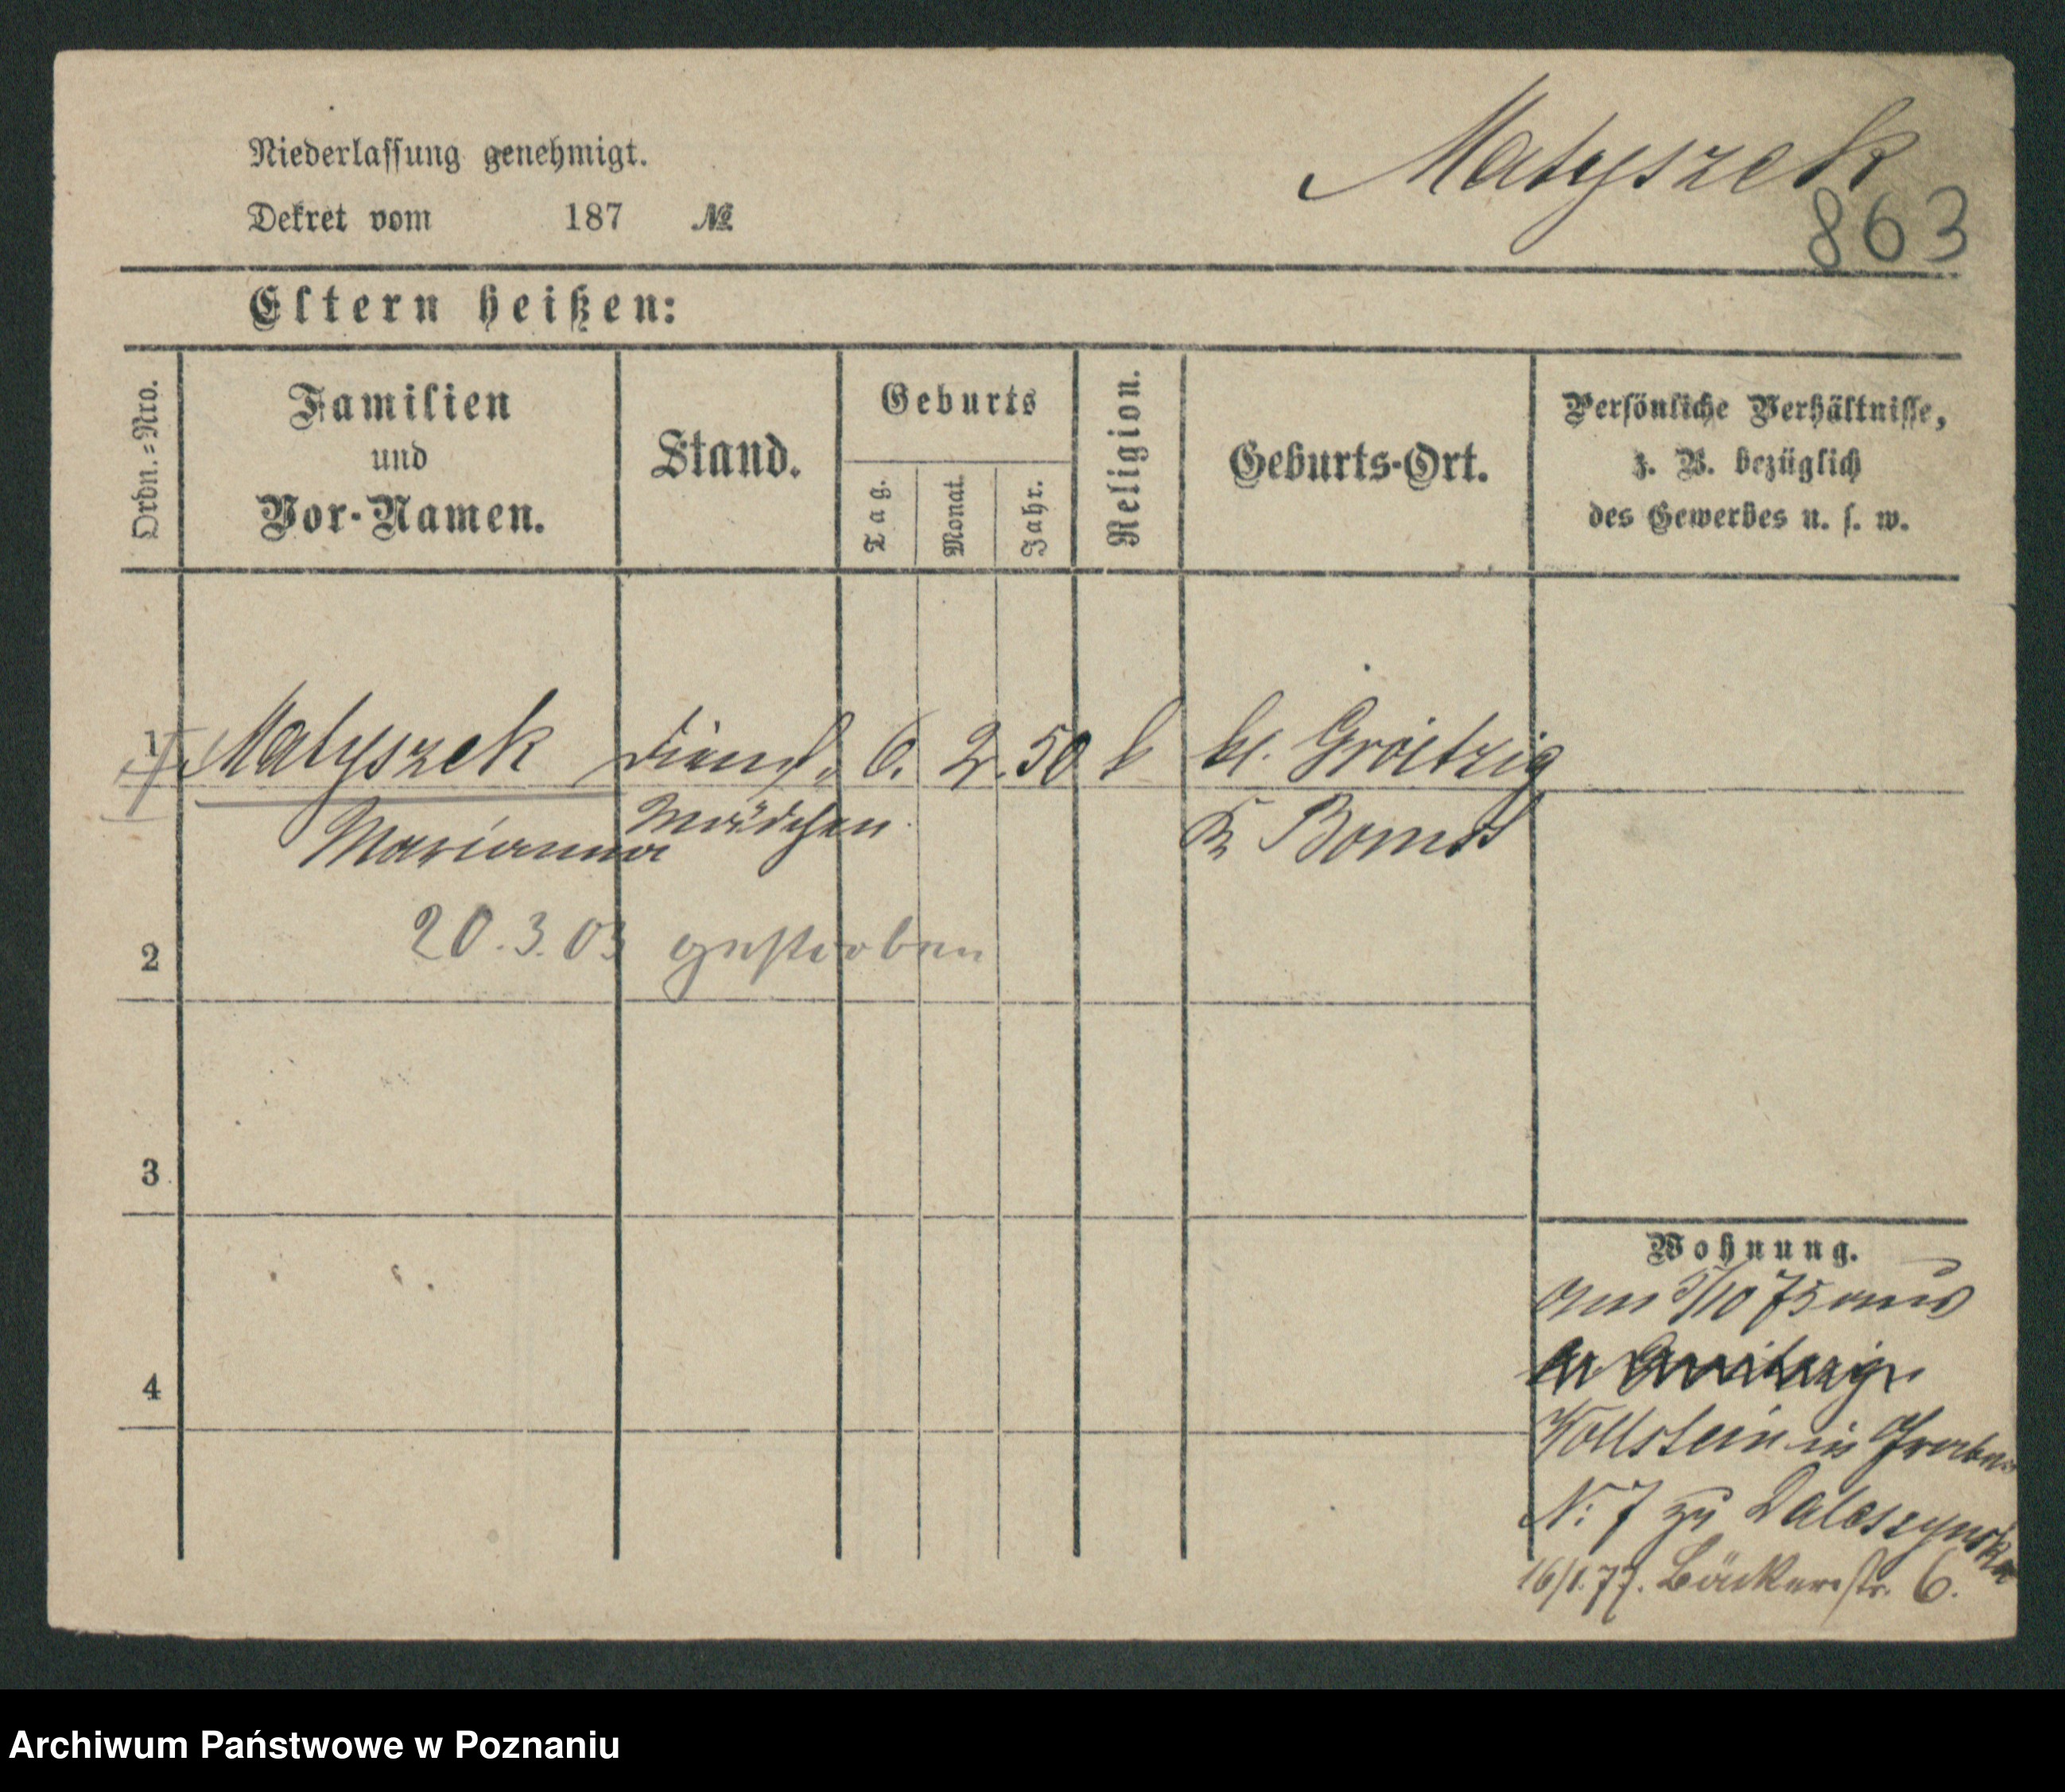 Matyszek
Niederlassung genehmigt.
863
Dekret vom 187 №
Eltern heißen:
Ordn.=Nro.
Familien
und
Vor-Namen.
Stand.
Geburts
Tag.
Monat.
Jahr.
Religion.
Geburts-Ort.
Persönliche Verhältnisse,
z. B. bezüglich
des Gewerbes u. s. w.
1 Matyszek Dienst 6. 2. 50 k kl. Groitzig
Marianna Mädchen Kr Bomst
2 20.3.03 gestorben
3
Wohnung.
am 3/10 75 aus
4
Wollstein in Graben
N: 7 zu Daleszynska
16/1.77. Bäckerstr. 6.
Archiwum Państwowe w Poznaniu